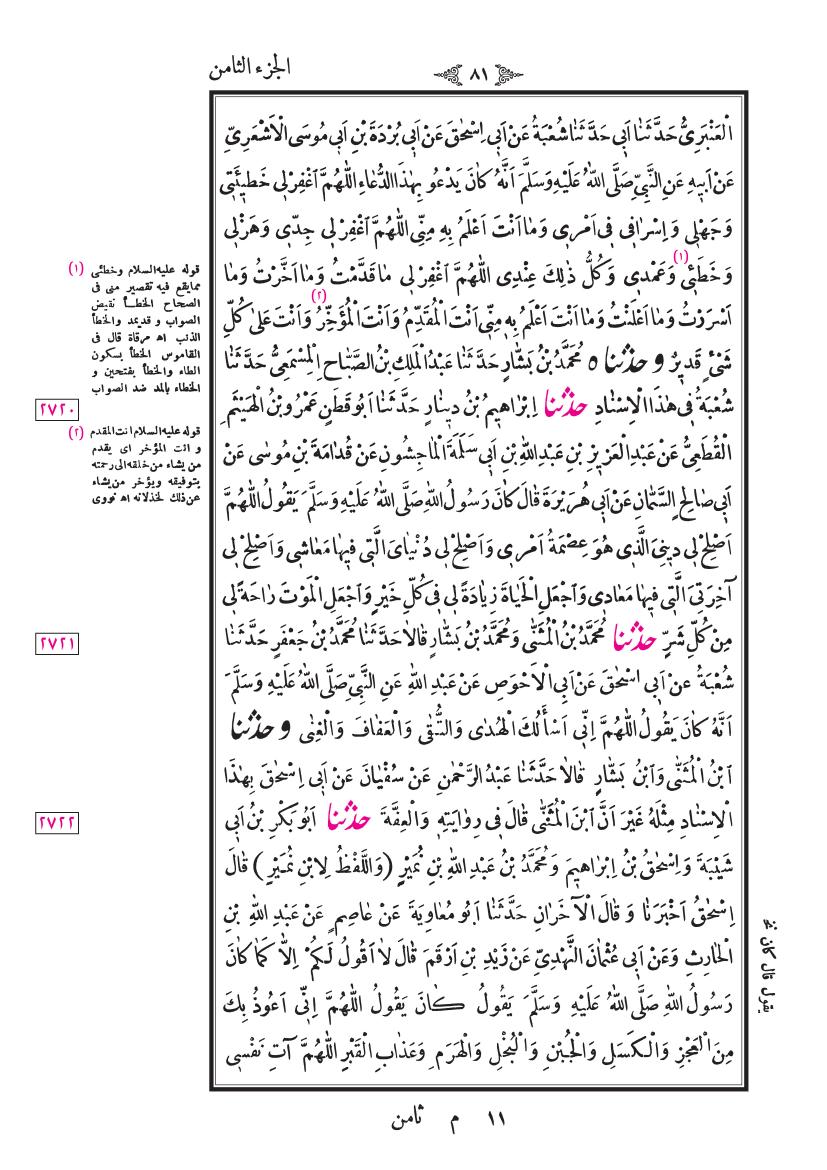 الجزء الثامن
٨١
الْعَنْبَرِيُّ حَدَّثَنَا اَبِى حَدَّثَنَا شُعْبَةُ عَنْ اَبِى اِسْحٰقَ عَنْ اَبِى بُرْدَةَ بْنِ اَبِى مُوسَى الْاَشْعَرِيِّ
عَنْ اَبِيهِ عَنِ النَّبِيِّ صَلَّى اللّٰهُ عَلَيْهِ وَسَلَّمَ اَنَّهُ كَانَ يَدْعُو بِهٰذَا الدُّعَاءِ اَللّٰهُمَّ اَغْفِرْلِى خَطِيئَتِى
وَجَهْلِى وَاِسْرَافِى فِى اَمْرِى وَمَا اَنْتَ اَعْلَمُ بِهِ مِنِّى اَللّٰهُمَّ اَغْفِرْ لِى جِدِّى وَهَزْلِى
وَخَطَئِى (١) وَعَمْدِى وَكُلُّ ذٰلِكَ عِنْدِى اَللّٰهُمَّ اَغْفِرْ لِى مَا قَدَّمْتُ وَمَا اَخَّرْتُ وَمَا
اَسْرَرْتُ وَمَا اَعْلَنْتُ وَمَا اَنْتَ اَعْلَمُ بِهِ مِنِّى اَنْتَ الْمُقَدِّمُ وَاَنْتَ الْمُؤَخِّرُ (٢) وَاَنْتَ عَلٰى كُلِّ
شَىْءٍ قَدِيرٌ و حدثنا ه مُحَمَّدُ بْنُ بَشَّارٍ حَدَّثَنَا عَبْدُ الْمَلِكِ بْنُ الصَّبَّاحِ اِلْمِسْمَعِىُّ حَدَّثَنَا
شُعْبَةُ فِى هٰذَا الْاِسْنَادِ حدثنا اِبْرَاهِيمُ بْنُ دِينَارٍ حَدَّثَنَا اَبُو قَطَنٍ عَمْرُو بْنُ الْهَيْثَمِ
الْقُطَعِىُّ عَنْ عَبْدِ الْعَزِيزِ بْنِ عَبْدِ اللّٰهِ بْنِ اَبِى سَلَمَةَ الْمَاجِشُونِ عَنْ قُدَامَةَ بْنِ مُوسٰى عَنْ
اَبِى صَالِحٍ السَّمَّانِ عَنْ اَبِى هُرَيْرَةَ قَالَ كَانَ رَسُولُ اللّٰهِ صَلَّى اللّٰهُ عَلَيْهِ وَسَلَّمَ يَقُولُ اَللّٰهُمَّ
اَصْلِحْ لِى دِينِىَ الَّذِى هُوَ عِصْمَةُ اَمْرِى وَاَصْلِحْ لِى دُنْيَاىَ الَّتِى فِيهَا مَعَاشِى وَاَصْلِحْ لِى
آخِرَتِىَ الَّتِى فِيهَا مَعَادِى وَاَجْعَلِ الْحَيَاةَ زِيَادَةً لِى فِى كُلِّ خَيْرٍ وَاَجْعَلِ الْمَوْتَ رَاحَةً لِى
مِنْ كُلِّ شَرٍّ حدثنا مُحَمَّدُ بْنُ الْمُثَنّٰى وَمُحَمَّدُ بْنُ بَشَّارٍ قَالَا حَدَّثَنَا مُحَمَّدُ بْنُ جَعْفَرٍ حَدَّثَنَا
شُعْبَةُ عَنْ اَبِى اِسْحٰقَ عَنْ اَبِى الْاَحْوَصِ عَنْ عَبْدِ اللّٰهِ عَنِ النَّبِيِّ صَلَّى اللّٰهُ عَلَيْهِ وَسَلَّمَ
اَنَّهُ كَانَ يَقُولُ اَللّٰهُمَّ اِنِّى اَسْأَلُكَ الْهُدٰى وَالتُّقٰى وَالْعَفَافَ وَالْغِنٰى و حدثنا
اَبْنُ الْمُثَنّٰى وَاَبْنُ بَشَّارٍ قَالَا حَدَّثَنَا عَبْدُ الرَّحْمٰنِ عَنْ سُفْيَانَ عَنْ اَبِى اِسْحٰقَ بِهٰذَا
الْاِسْنَادِ مِثْلَهُ غَيْرَ اَنَّ اَبْنَ الْمُثَنّٰى قَالَ فِى رِوَايَتِهِ وَالْعِفَّةَ حدثنا اَبُو بَكْرِ بْنُ اَبِى
شَيْبَةَ وَاِسْحٰقُ بْنُ اِبْرَاهِيمَ وَمُحَمَّدُ بْنُ عَبْدِ اللّٰهِ بْنِ نُمَيْرٍ (وَاللَّفْظُ لِابْنِ نُمَيْرٍ) قَالَ
اِسْحٰقُ اَخْبَرَنَا وَقَالَ الْآخَرَانِ حَدَّثَنَا اَبُو مُعَاوِيَةَ عَنْ عَاصِمٍ عَنْ عَبْدِ اللّٰهِ بْنِ
الْحَارِثِ وَعَنْ اَبِى عُثْمَانَ النَّهْدِىِّ عَنْ زَيْدِ بْنِ اَرْقَمَ قَالَ لَا اَقُولُ لَكُمْ اِلَّا كَمَا كَانَ
رَسُولُ اللّٰهِ صَلَّى اللّٰهُ عَلَيْهِ وَسَلَّمَ يَقُولُ كَانَ يَقُولُ اَللّٰهُمَّ اِنِّى اَعُوذُ بِكَ
مِنَ الْعَجْزِ وَالْكَسَلِ وَالْجُبْنِ وَالْبُخْلِ وَالْهَرَمِ وَعَذَابِ الْقَبْرِ اَللّٰهُمَّ آتِ نَفْسِى
(١) قوله عليه السلام وخطئى
مما يقع فيه تقصير منى فى
الصحاح الخطأ نقيض
الصواب و قد يمد والخطأ
الذنب اه مرقاة قال فى
القاموس الخطأ بسكون
الطاء والخطأ بفتحين و
الخطاء بالمد ضد الصواب
٢٧٢٠
(٢) قوله عليه السلام انت المقدم
و انت المؤخر اى يقدم
من يشاء من خلقه الى رحمته
بتوفيقه ويؤخر من يشاء
عن ذلك لخذلانه اه نووى
٢٧٢١
٢٧٢٢
يقول قال كان
١١ م ثامن